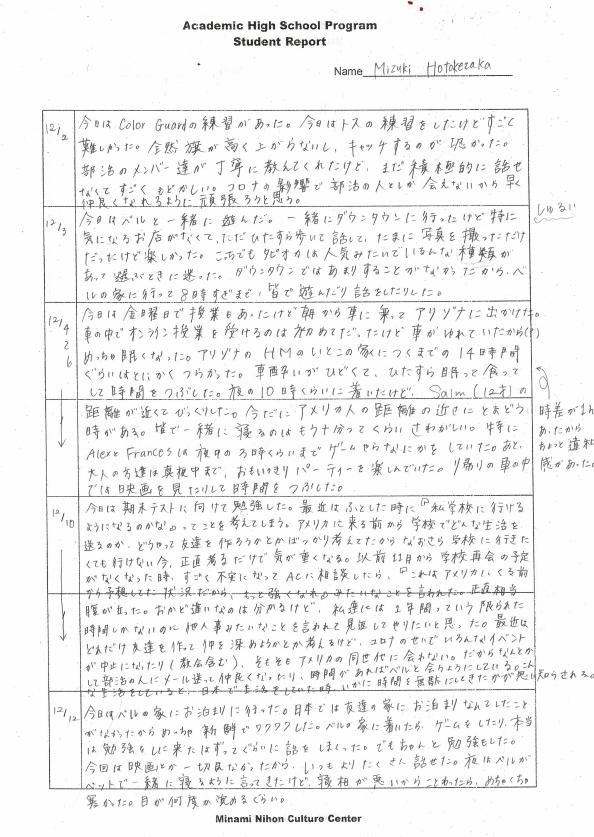 Academic High School Program
Student Report
Name Mizuki Hotokezaka
12/2
今日は Color Guardの練習があった。今日はトスの練習をしたけどすごく
難しかった。全然旗が高く上がらないし、キャッチするのが恐かった。
部活のメンバー達が丁寧に教えてくれたけど、まだ積極的に話せ
なくてすごくもどかしい。コロナの影響で部活の人としか会えないから早く
仲良くなれるように頑張ろうと思う。
12/3
今日はベルと一緒に遊んだ。一緒にダウンタウンに行ったけど特に
気になるお店がなくて、ただひたすら歩いて話して、たまに写真を撮っただけ
だったけど楽しかった。ここでもタピオカは人気みたいでいろんな種類が
あって選ぶときに迷った。ダウンタウンではあまりすることがなかったから、ベ
ルの家に行って8時すぎまで、皆で遊んだり話をしたりした。
しゅるい
12/4
2
6
今日は金曜日で授業もあったけど朝から車に乗ってアリゾナに出かけた。
車の中でオンライン授業を受けるのは初めてだったけど車がゆれていたから(?)
めっちゃ眠くなった。アリゾナのHMのいとこの家につくまでの14時間
ぐらいはとにかくつらかった。車酔いがひどくて、ひたすら眠って食って
して時間をつぶした。夜の10時くらいに着いたけど、Salm(12才の
距離が近くてびっくりした。今だにアメリカ人の距離の近さにとまどう
時がある。皆で一緒に寝るのはもう十分ってくらいさわがしい。特に
AlexとFrancesは夜中の3時くらいまでゲームやらなにかをしていた。あと、
大人の方達は真夜中まで、おもいきりパーティーを楽しんでいた。帰りの車の中
では映画を見たりして時間をつぶした。
時差が1h
あったから
ちょっと違和
感があった
12/10
今日は期末テストに向けて勉強した。最近はふとした時に『私学校に行ける
ようになるのかな』ってことを考えてしまう。アメリカに来る前から学校でどんな生活を
送るのか、どうやって友達を作ろうかとかばっかり考えてたからなおさら学校に行きた
くても行けない今、正直考るだけで気が重くなる。以前11月から学校再会の予定
がなくなった時、すごく不安になってACに相談したら、『これはアメリカにくる前
から予想してた状況だから、もっと強くなれ』みたいなことを言われた。正直相当
腹が立った。おかど違いなのは分かるけど、私達には1年間っていう限られた
時間しかないのに他人事みたいなことを言われて見返してやりたいと思った。最近は
どれだけ友達を作って仲を深めようかと考えるけど、コロナのせいでいろんなイベント
が中止になったり(教会含む)、そもそもアメリカの同世代に会えない。だからなんとか
して部活の人にメール送って仲良くなったり、時間があればベルと会うようにしている。こん
な生活をしていると、日本で生活をしていた時、いかに時間を無駄にしてきたかが思い知らされる。
12/12
今日はベルの家にお泊まりに行った。日本では友達の家にお泊まりなんてしたこと
がなかったからめっちゃ新鮮でワクワクした。ベルの家に着いたら、ゲームをしたり、本当
は勉強をしに来たはずってぐらいに話をしまくった。でもちゃんと勉強もした。
今回は映画とか一切見なかったから、いつもよりたくさん話せた。夜はベルが
ベットで一緒に寝るように言ってきたけど、寝相が悪いからことわったら、めちゃくちゃ
寒かった。目が何度か覚めるぐらい。
Minami Nihon Culture Center